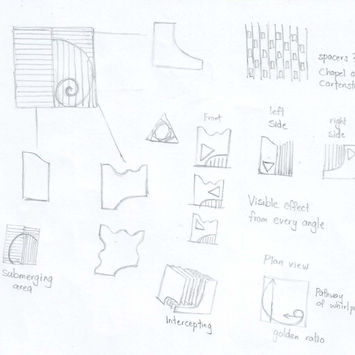 spacers
Chapel
left
side
Front
right
side
Visible effect
from every angle
Plan view
Submerging
area
Pathway
of whirlp
Intercepting
golden ratio